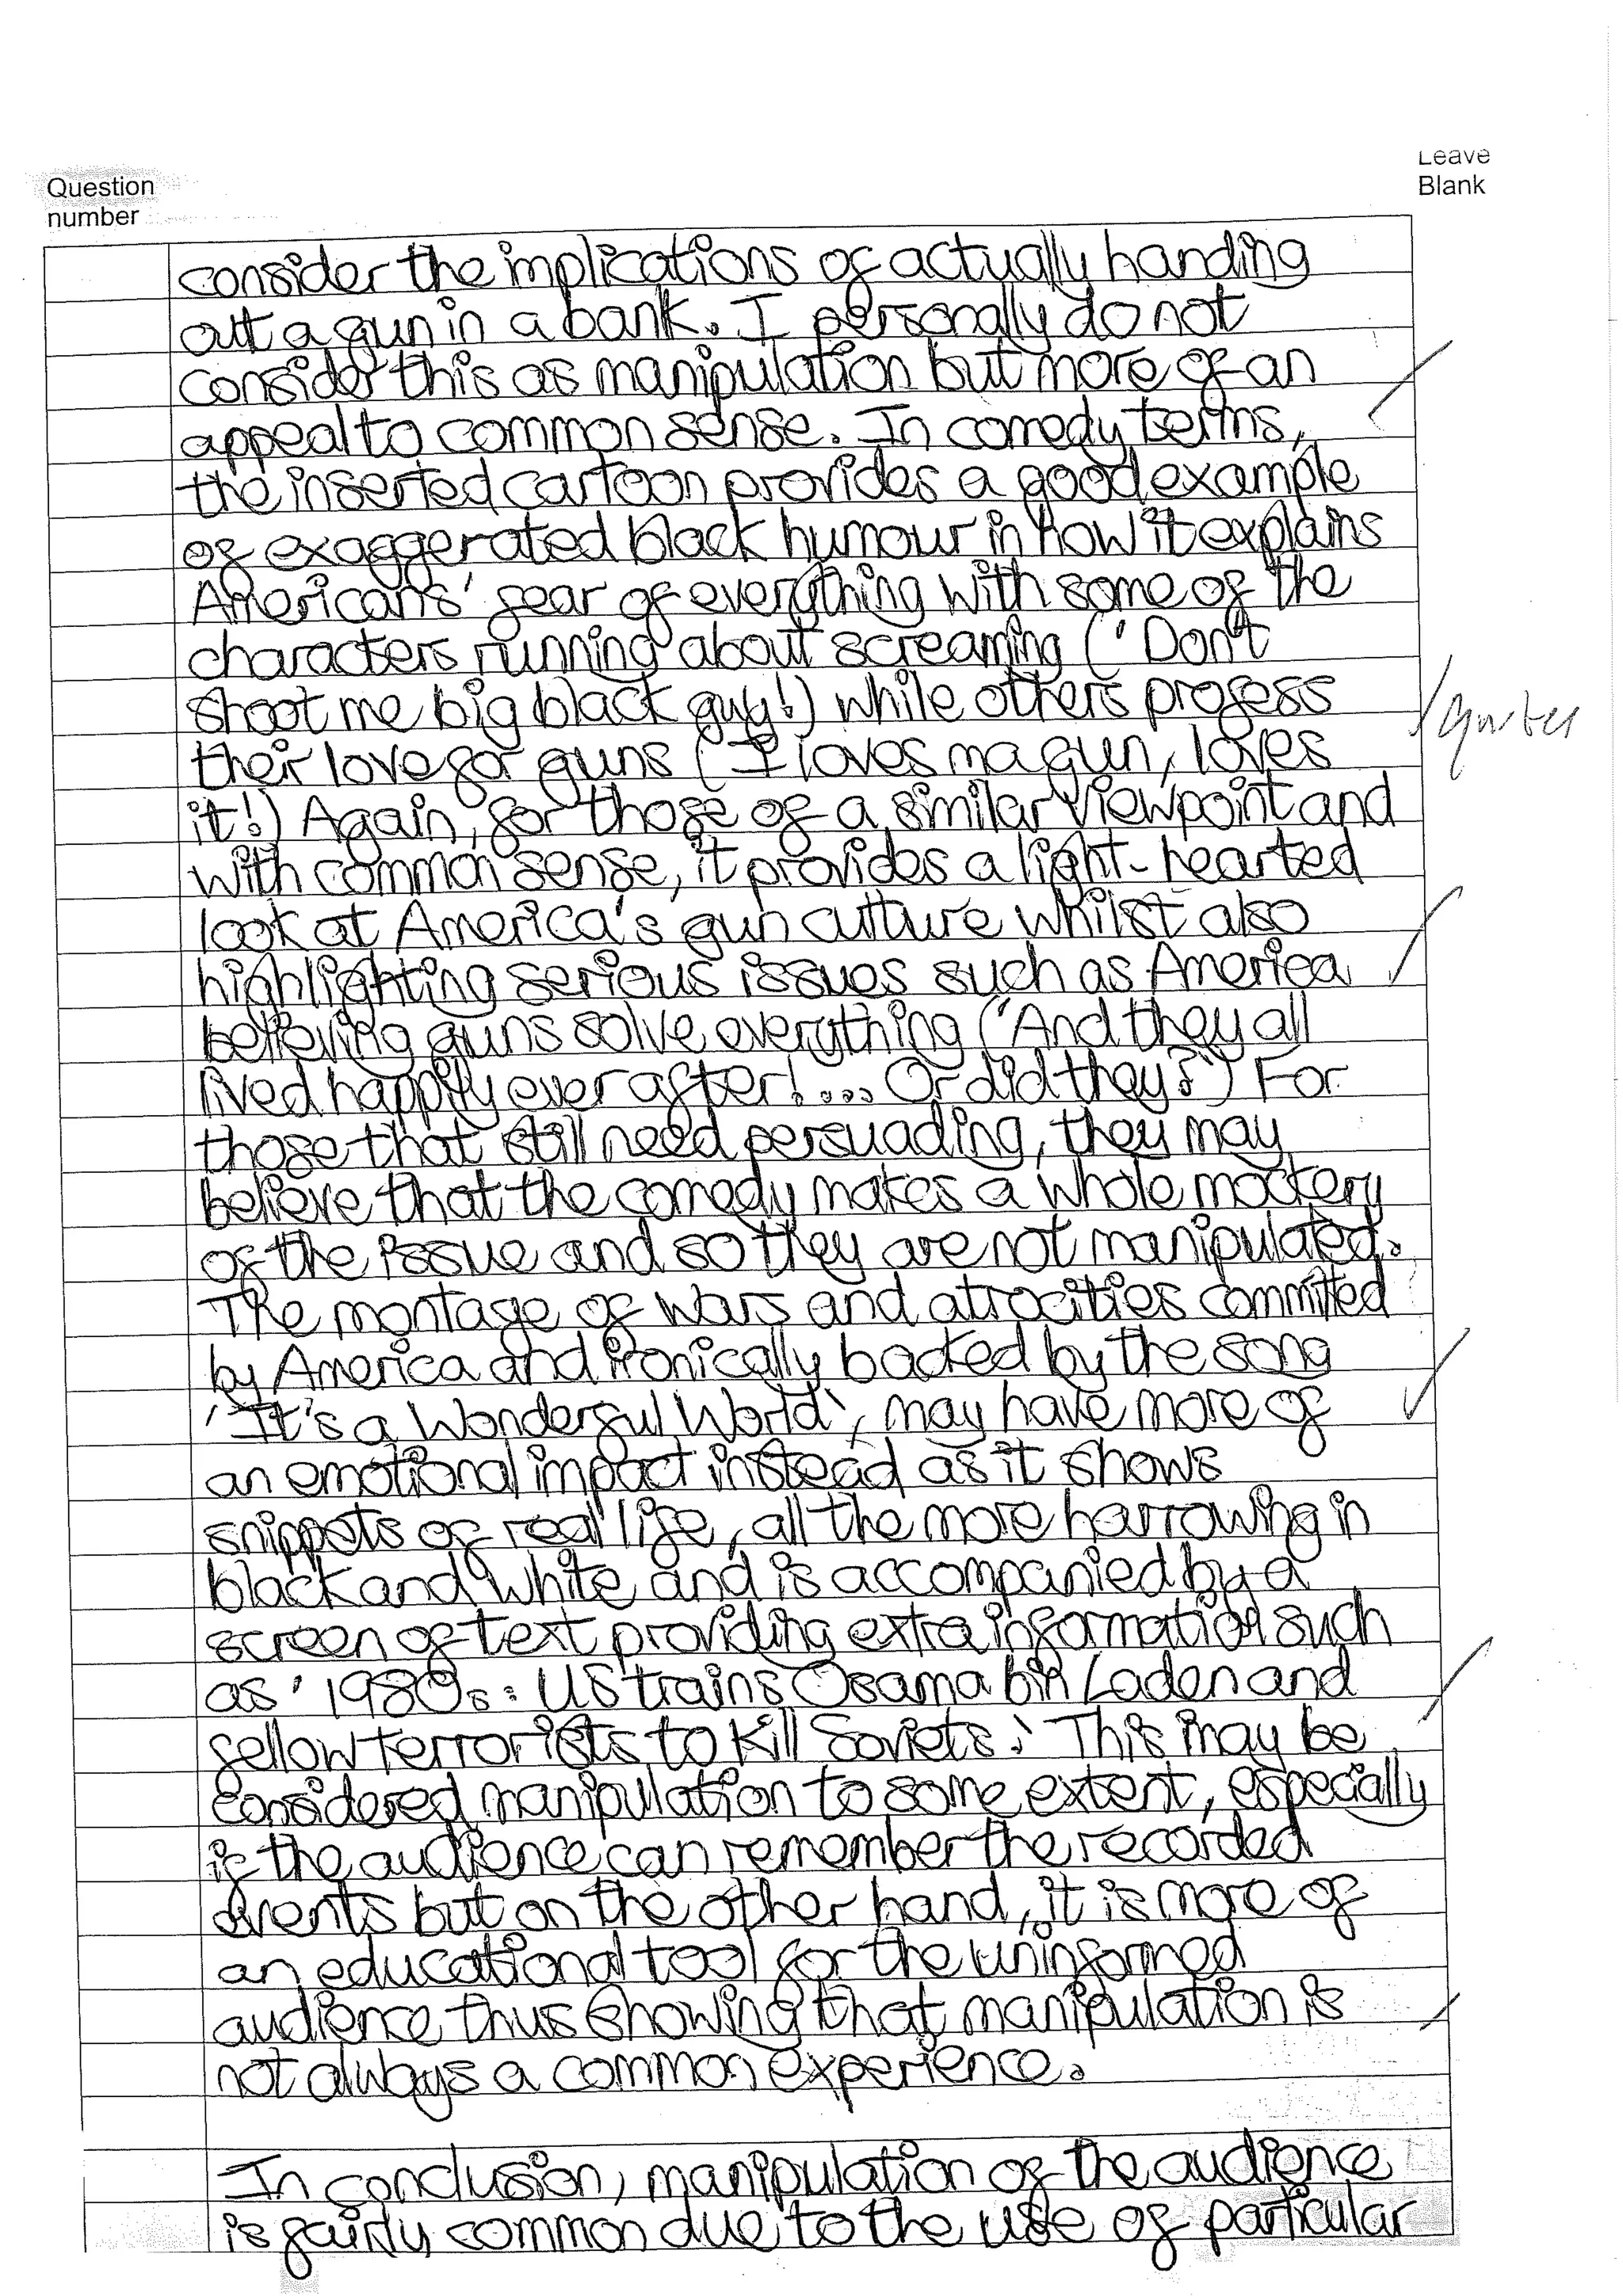 Leave
Question
Blank
number
consider the implications of actually handing
out a gun in a bank. I personally do not
consider this as manipulation but more of an
appeal to common sense. In comedy terms,
the inserted cartoon provides a good example
of exaggerated black humour in how it explains
Americans' fear of everything with some of the
characters running about screaming ('Don't
shoot me big black guy!) while others profess
their love for guns (I loves ma gun, loves
it!) Again, for those of a similar viewpoint and
with common sense, it provides a light-hearted
look at America's gun culture whilst also
highlighting serious issues such as America
believing guns solve everything ("And they all
lived happily ever after!... Or did they?") For
those that still need persuading, they may
believe that the comedy makes a whole mockery
of the issue and so they are not manipulated.
The montage of wars and atrocities commited
by America and ironically backed by the song
'It's a Wonderful World', may have more of
an emotional impact instead as it shows
snippets of real life, all the more harrowing in
black and white and is accompanied by a
screen of text providing extra information such
as '1980s: US trains Osama bin Laden and
fellow terrorists to kill Soviets.' This may be
considered manipulation to some extent, especially
if the audience can remember the recorded
events but on the other hand, it is more of
an educational tool for the uninformed
audience thus showing that manipulation is
not always a common experience.
In conclusion, manipulation of the audience
is fairly common due to the use of particular